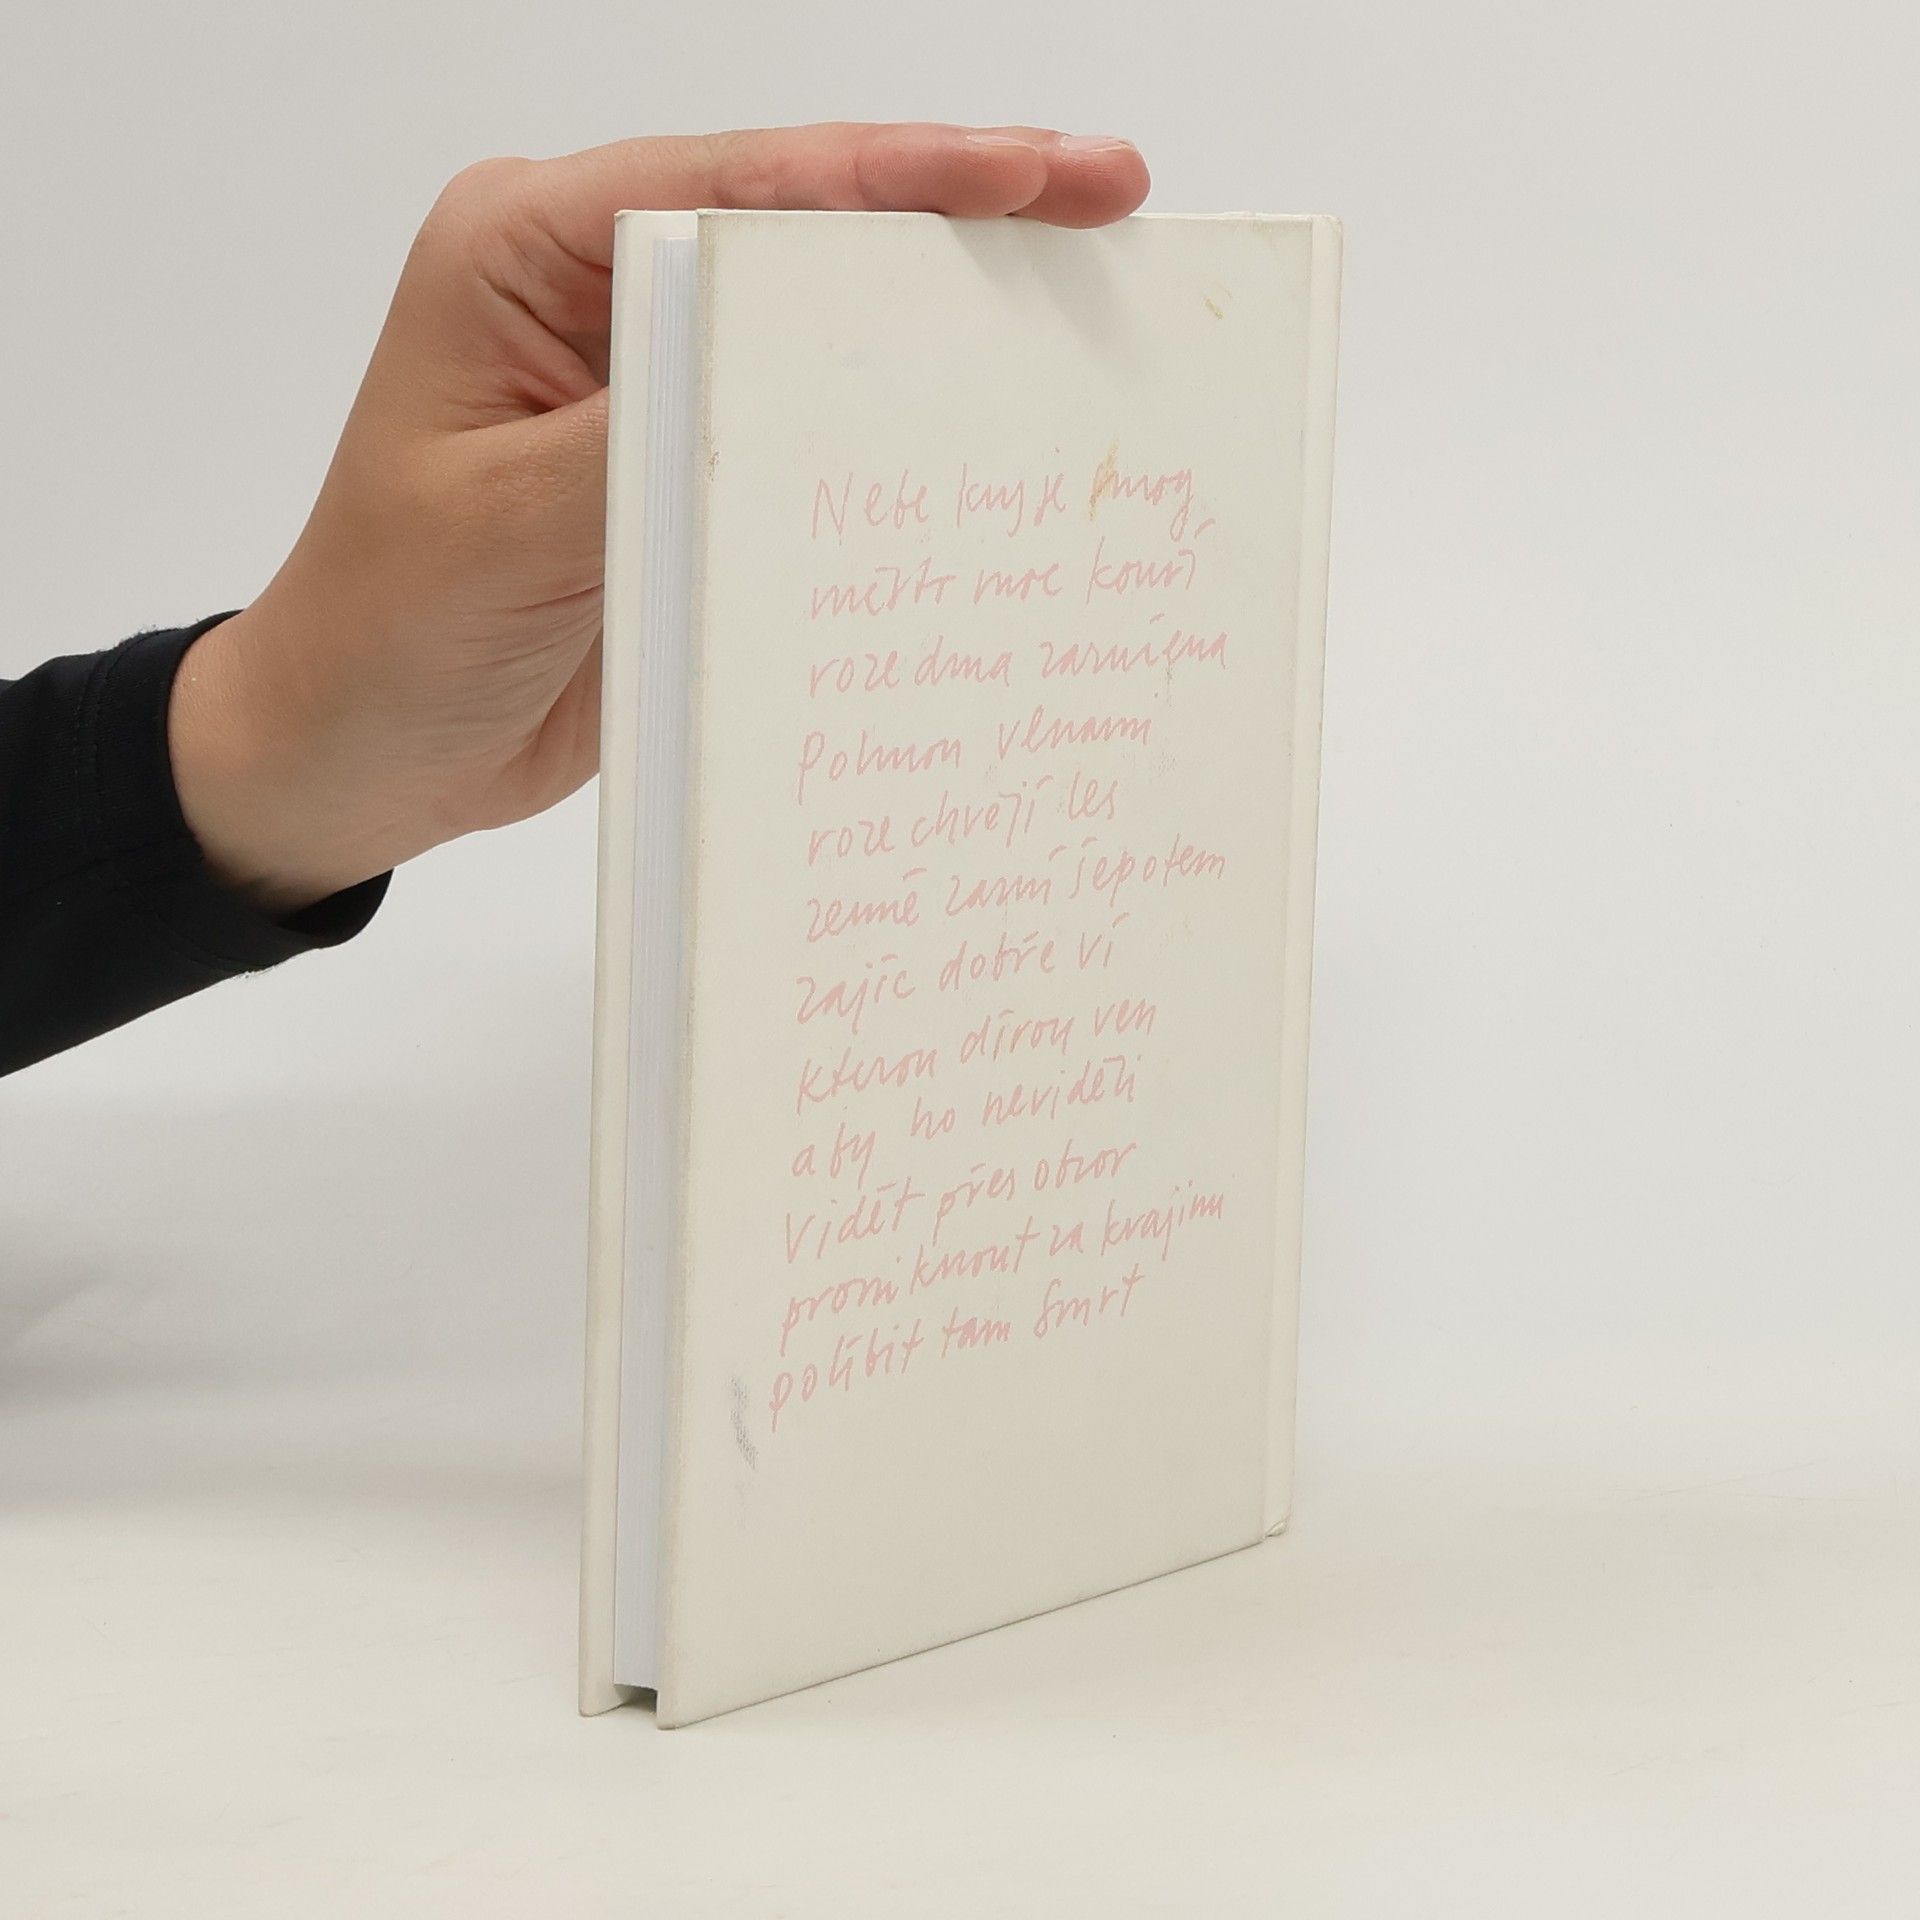 Nebe kryje smog
město moe kouří
roze dma zarmícena
Pohnou vlnami
roze chvějí les
země zazní šepotem
zajíc dobře ví
kterou dírou ven
aby ho neviděli
Vidět přes obzor
proniknout za krajinu
políbit tam Smrt